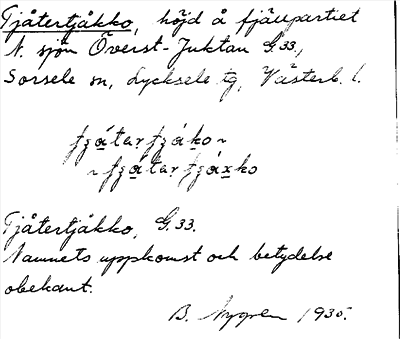 Tjåtertjåkko, höjd å fjällpartiet
N. sjön Överst-Juktan G33,
Sorsele sn, Lycksele tg, Västerb. l.
Tjåtertjåkko, G.33.
Namnets uppkomst och betydelse
obekant.
B. Nygren 1930.